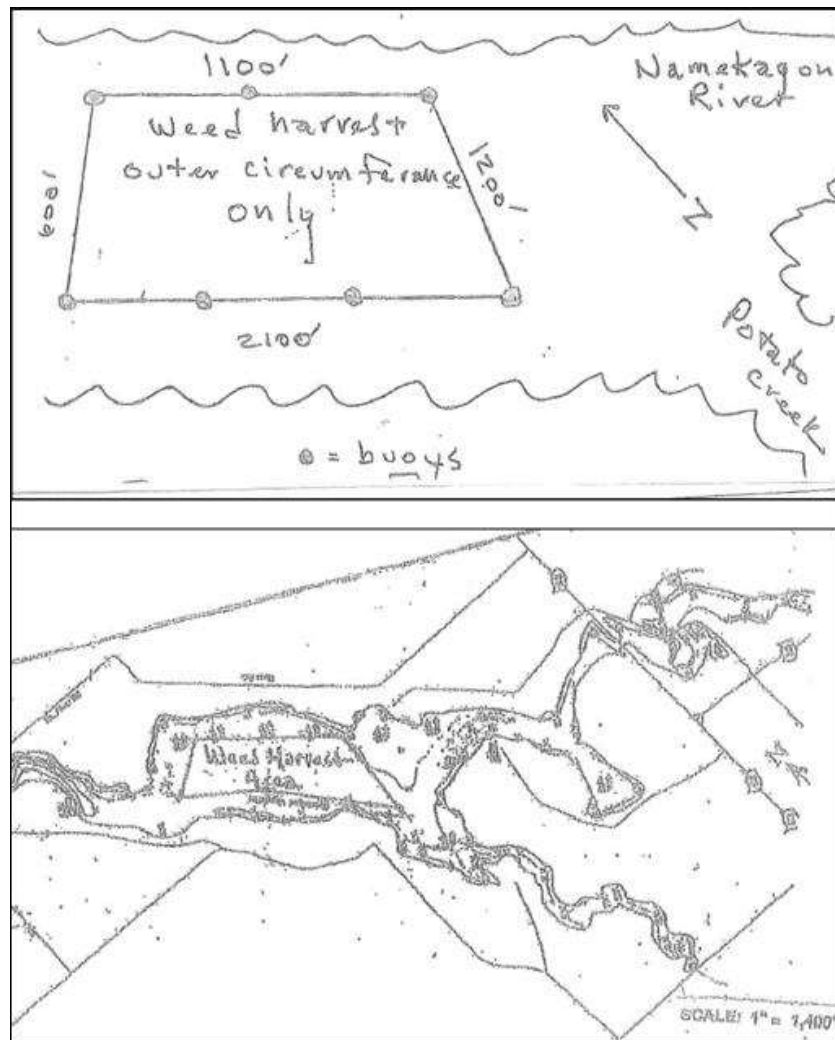 1100'
Namekagon
River
Weed harvest
outer circumferance
only
600'
1200'
N
2100'
Potato
Creek
= buoys
Weed Harvest
Area
SCALE: 1" = 1,400'